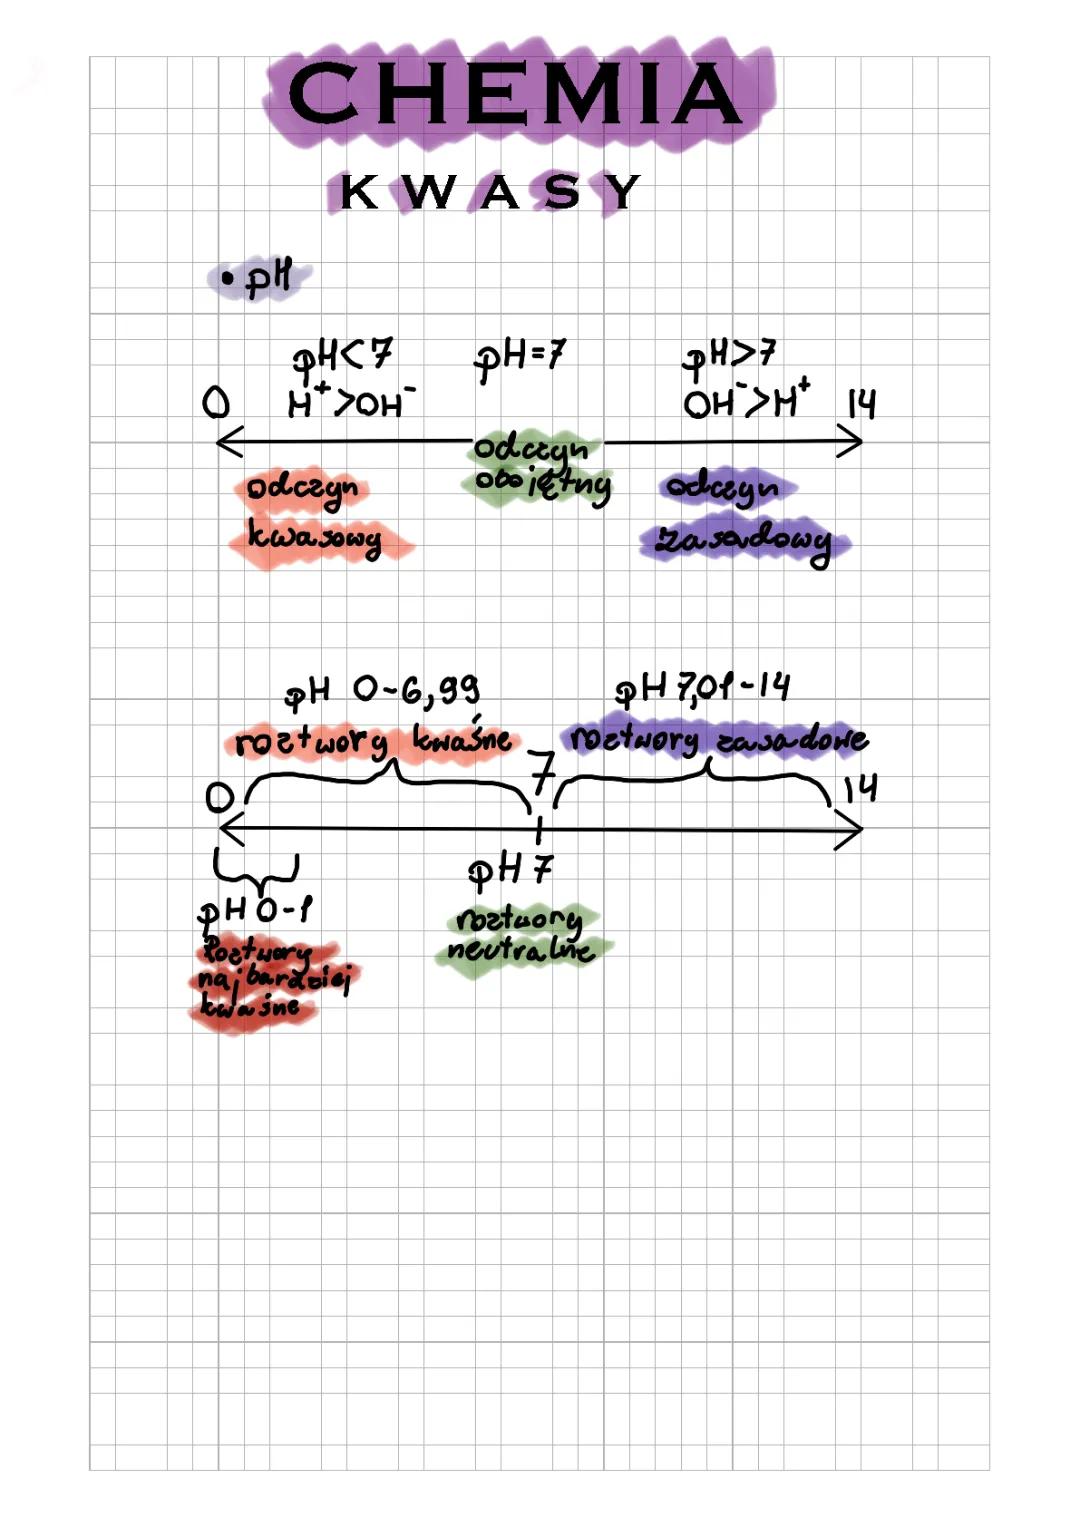 CHEMIA
KWASY
• pH
pH<7 pH=7 pH>7
0 H⁺>OH⁻ OH⁻>H⁺ 14
odczyn
obojętny
odczyn odczyn
kwasowy zasadowy
pH 0-6,99 pH 7,01-14
roztwory kwaśne roztwory zasadowe
0 7 14
pH 7
pH 0-1
roztwory
neutralne
Roztwory
najbardziej
kwaśne